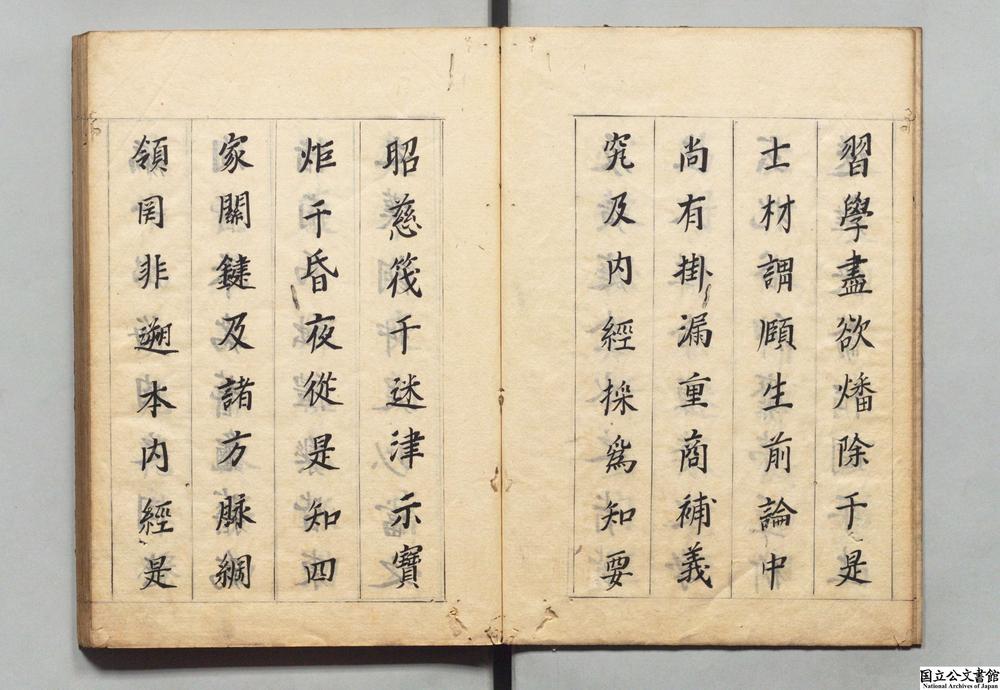 習學盡欲燔除于是
士材謂頤生前論中
尚有掛漏重商補義
究及内經採爲知要
昭慈筏千迷津示寶
炬于昏夜從是知四
家關鍵及諸方脉綱
領罔非遡本内經是
国立公文書館
National Archives of Japan